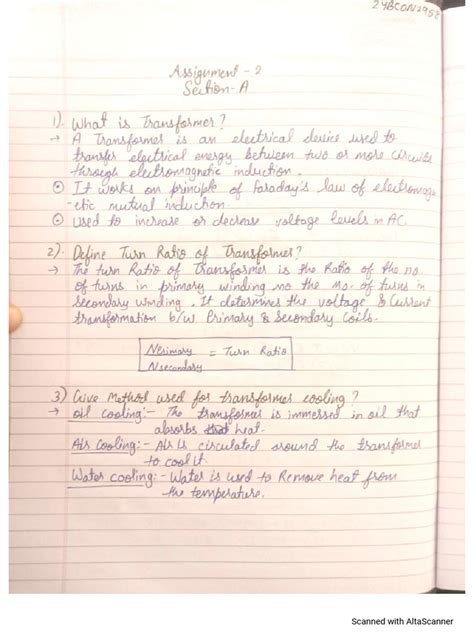 24BCON2958
Assignment - 2
Section - A
1). What is Transformer?
→ A Transformer is an electrical device used to
transfer electrical energy between two or more circuits
through electromagnetic induction.
⊙ It works on principle of Faraday's law of electromag
-etic mutual induction.
⊙ Used to increase or decrease voltage levels in AC.
2). Define Turn Ratio of Transformer?
→ The turn Ratio of Transformer is the Ratio of the no.
of turns in primary winding no the No. of turns in
secondary winding. It determines the voltage & Current
transformation b/w Primary & Secondary Coils.
NPrimary = Turn Ratio
NSecondary
3) Give Method used for transformer cooling?
→ oil cooling:- The transformer is immersed in oil that
absorbs heat.
Air Cooling:- Air is circulated around the transformer
to cool it.
Water cooling:- Water is used to Remove heat from
the temperature.
Scanned with AltaScanner